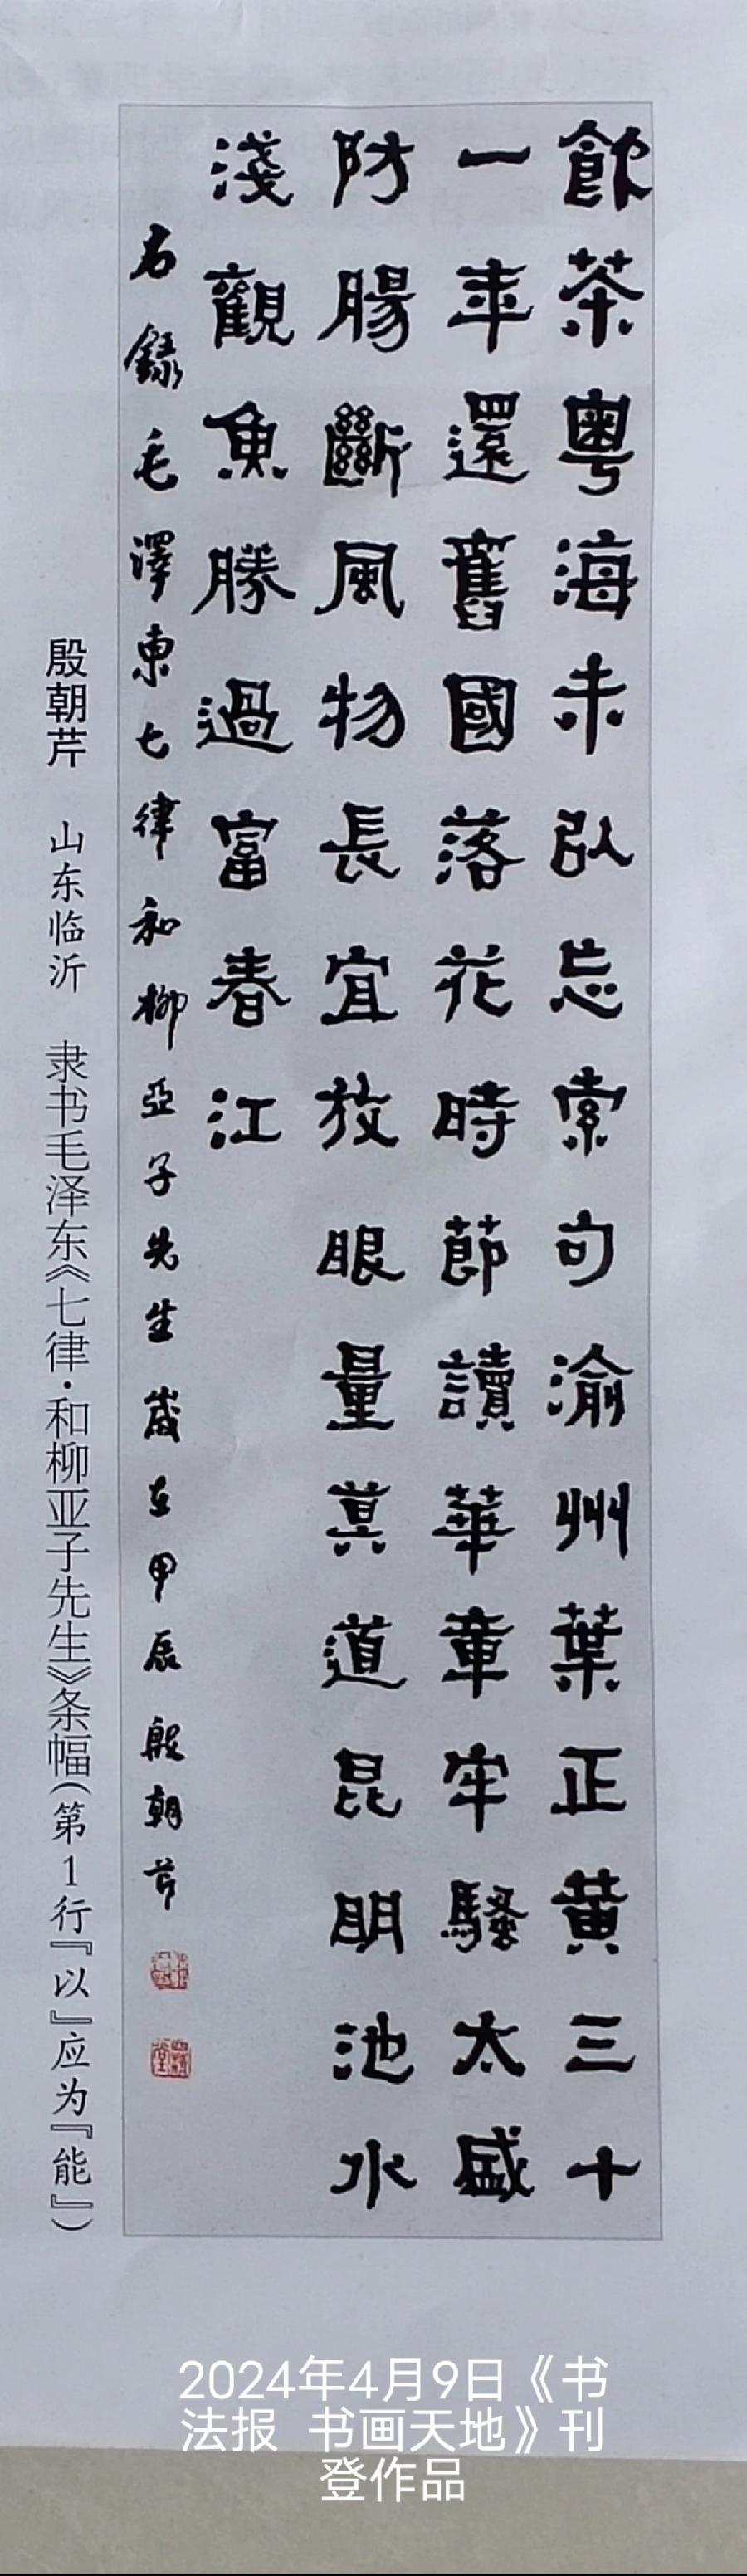 飲茶粵海未以忘索句渝州葉正黃三十
一年還舊國落花時節讀華章牢騷太盛
防腸斷風物長宜放眼量莫道昆明池水
淺觀魚勝過富春江
右錄毛澤東七律和柳亞子先生歲在甲辰殷朝芹
殷朝芹 山东临沂 隶书毛泽东《七律·和柳亚子先生》条幅(第1行『以』应为『能』)
2024年4月9日《书
法报 书画天地》刊
登作品